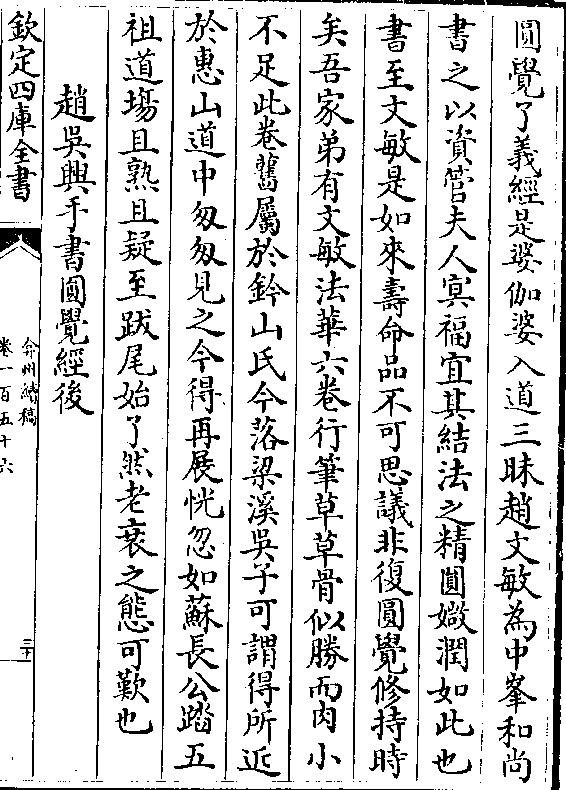 圓覺了義經是婆伽婆入道三昧趙文敏為中峯和尚
書之以資管夫人冥福宜其結法之精圓媺潤如此也
書至文敏是如來壽命品不可思議非復圓覺修持時
矣吾家弟有文敏法華六卷行筆草草骨似勝而肉小
不足此卷舊屬於鈐山氏今落梁溪吳子可謂得所近
於惠山道中匆匆見之今得再展恍忽如蘇長公踏五
祖道塲且熟且疑至跋尾始了然老衰之態可歎也
趙吳興手書圓覺經後
欽定四庫全書
弇州續稿
卷一百五十六
三十